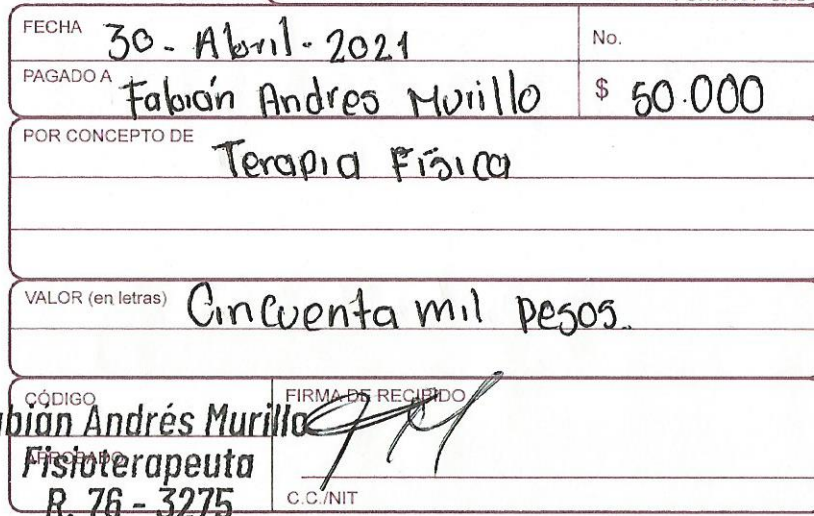 FECHA 30 - Abril - 2021
No.
PAGADO A Fabián Andres Murillo
$ 50.000
POR CONCEPTO DE Terapia Física
VALOR (en letras) Cincuenta mil pesos.
CÓDIGO
FIRMA DE RECIBIDO
bián Andrés Murillo
APROBADO
Fisioterapeuta
R. 76 - 3275
C.C./NIT